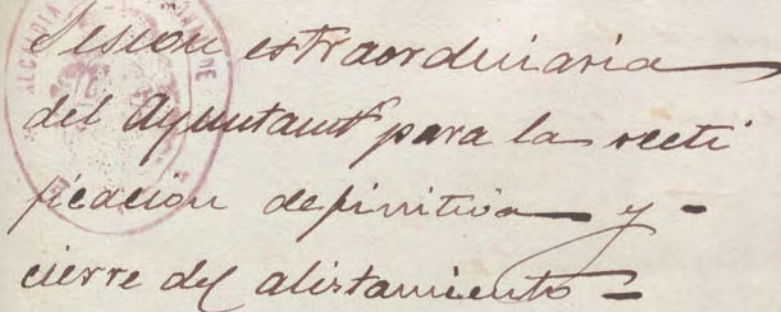 Sesion extraordinaria
del Ayuntamto para la recti
ficación definitiva y -
cierre del alistamiento =
ALCALDIA DE